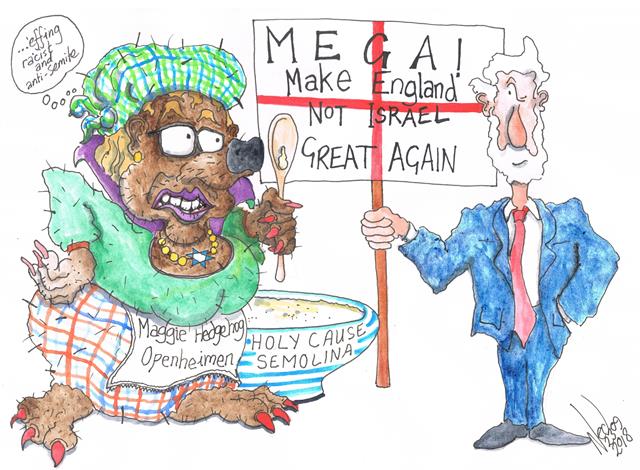 ...'effing
racist
and
anti-semite
MEGA!
Make England
NOT ISRAEL
GREAT AGAIN
Maggie Hedgehog
Openheimen
HOLY CAUSE
SEMOLINA
2018